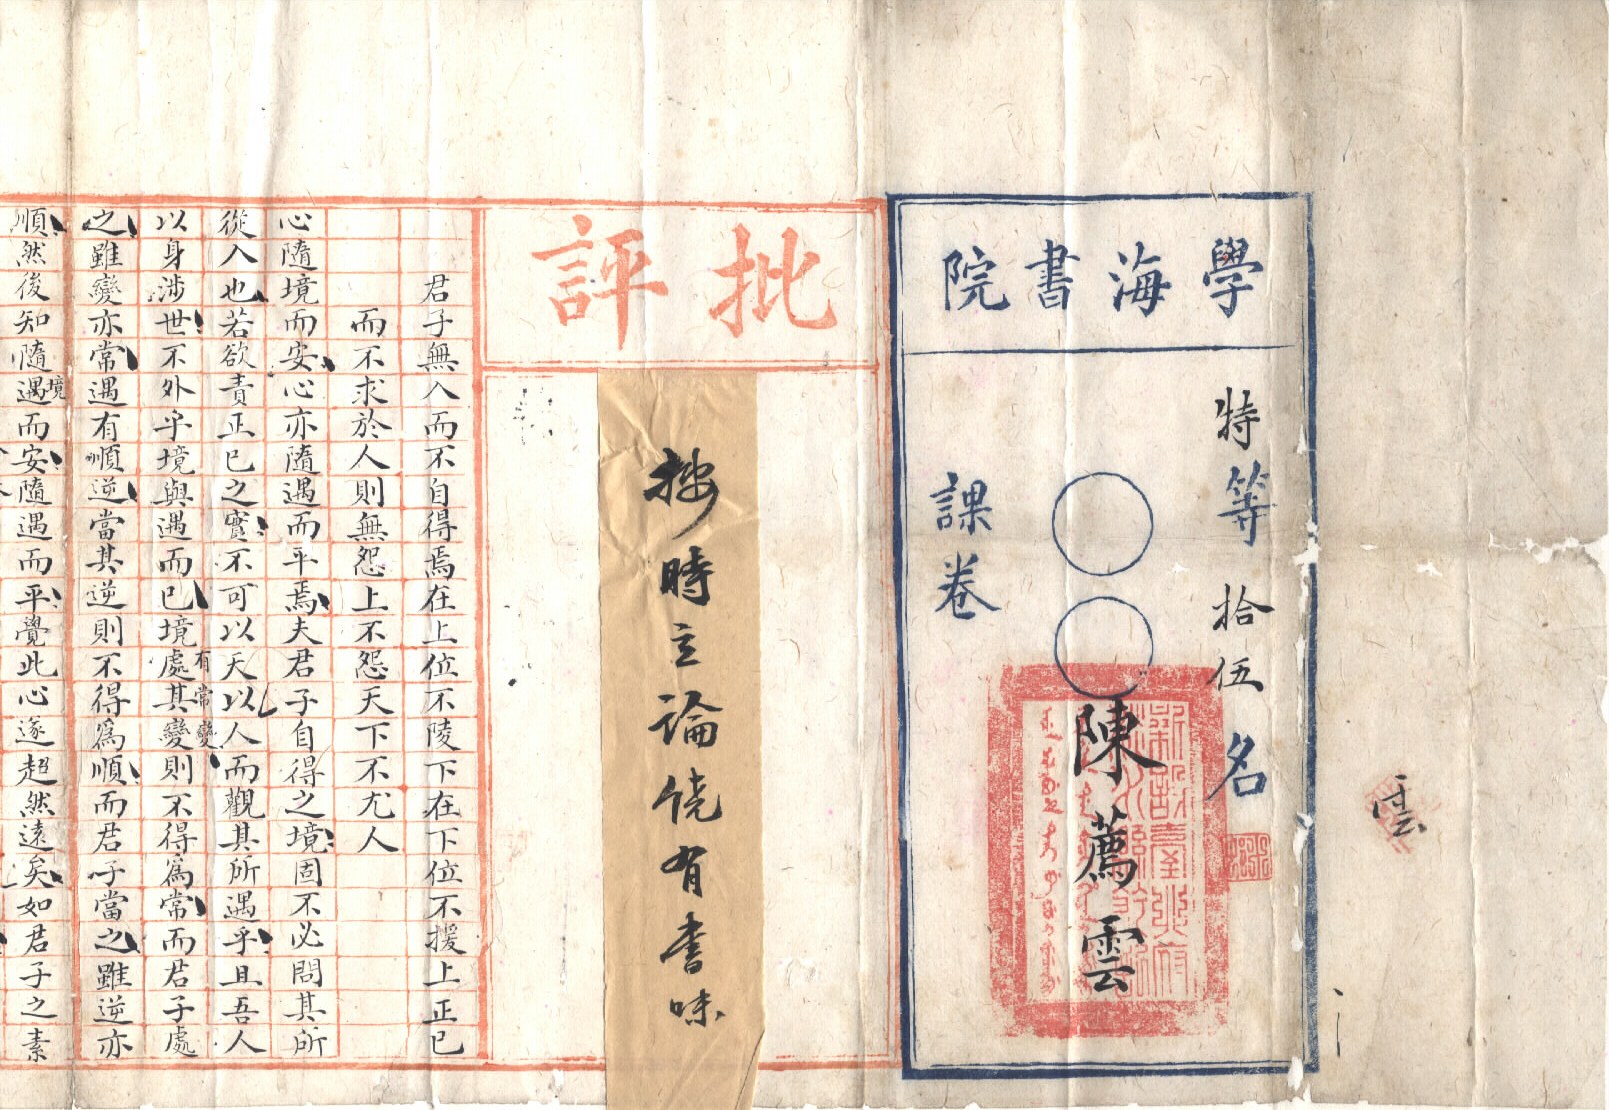 學海書院
特等拾伍名
課卷
陳薦雲
雲
批評
按時立論饒有書味
君子無入而不自得焉在上位不陵下在下位不援上正已
而不求於人則無怨上不怨天下不尤人
心隨境而安心亦隨遇而平焉夫君子自得之境固不必問其所
從入也若欲責正已之實不可以天以人而觀其所遇乎且吾人
以身涉世不外乎境與遇而已境處其變則不得為常而君子處
有常變
之雖變亦常遇有順逆當其逆則不得為順而君子當之雖逆亦
順然後知隨遇而安隨遇而平覺此心遂超然遠矣如君子之素
境